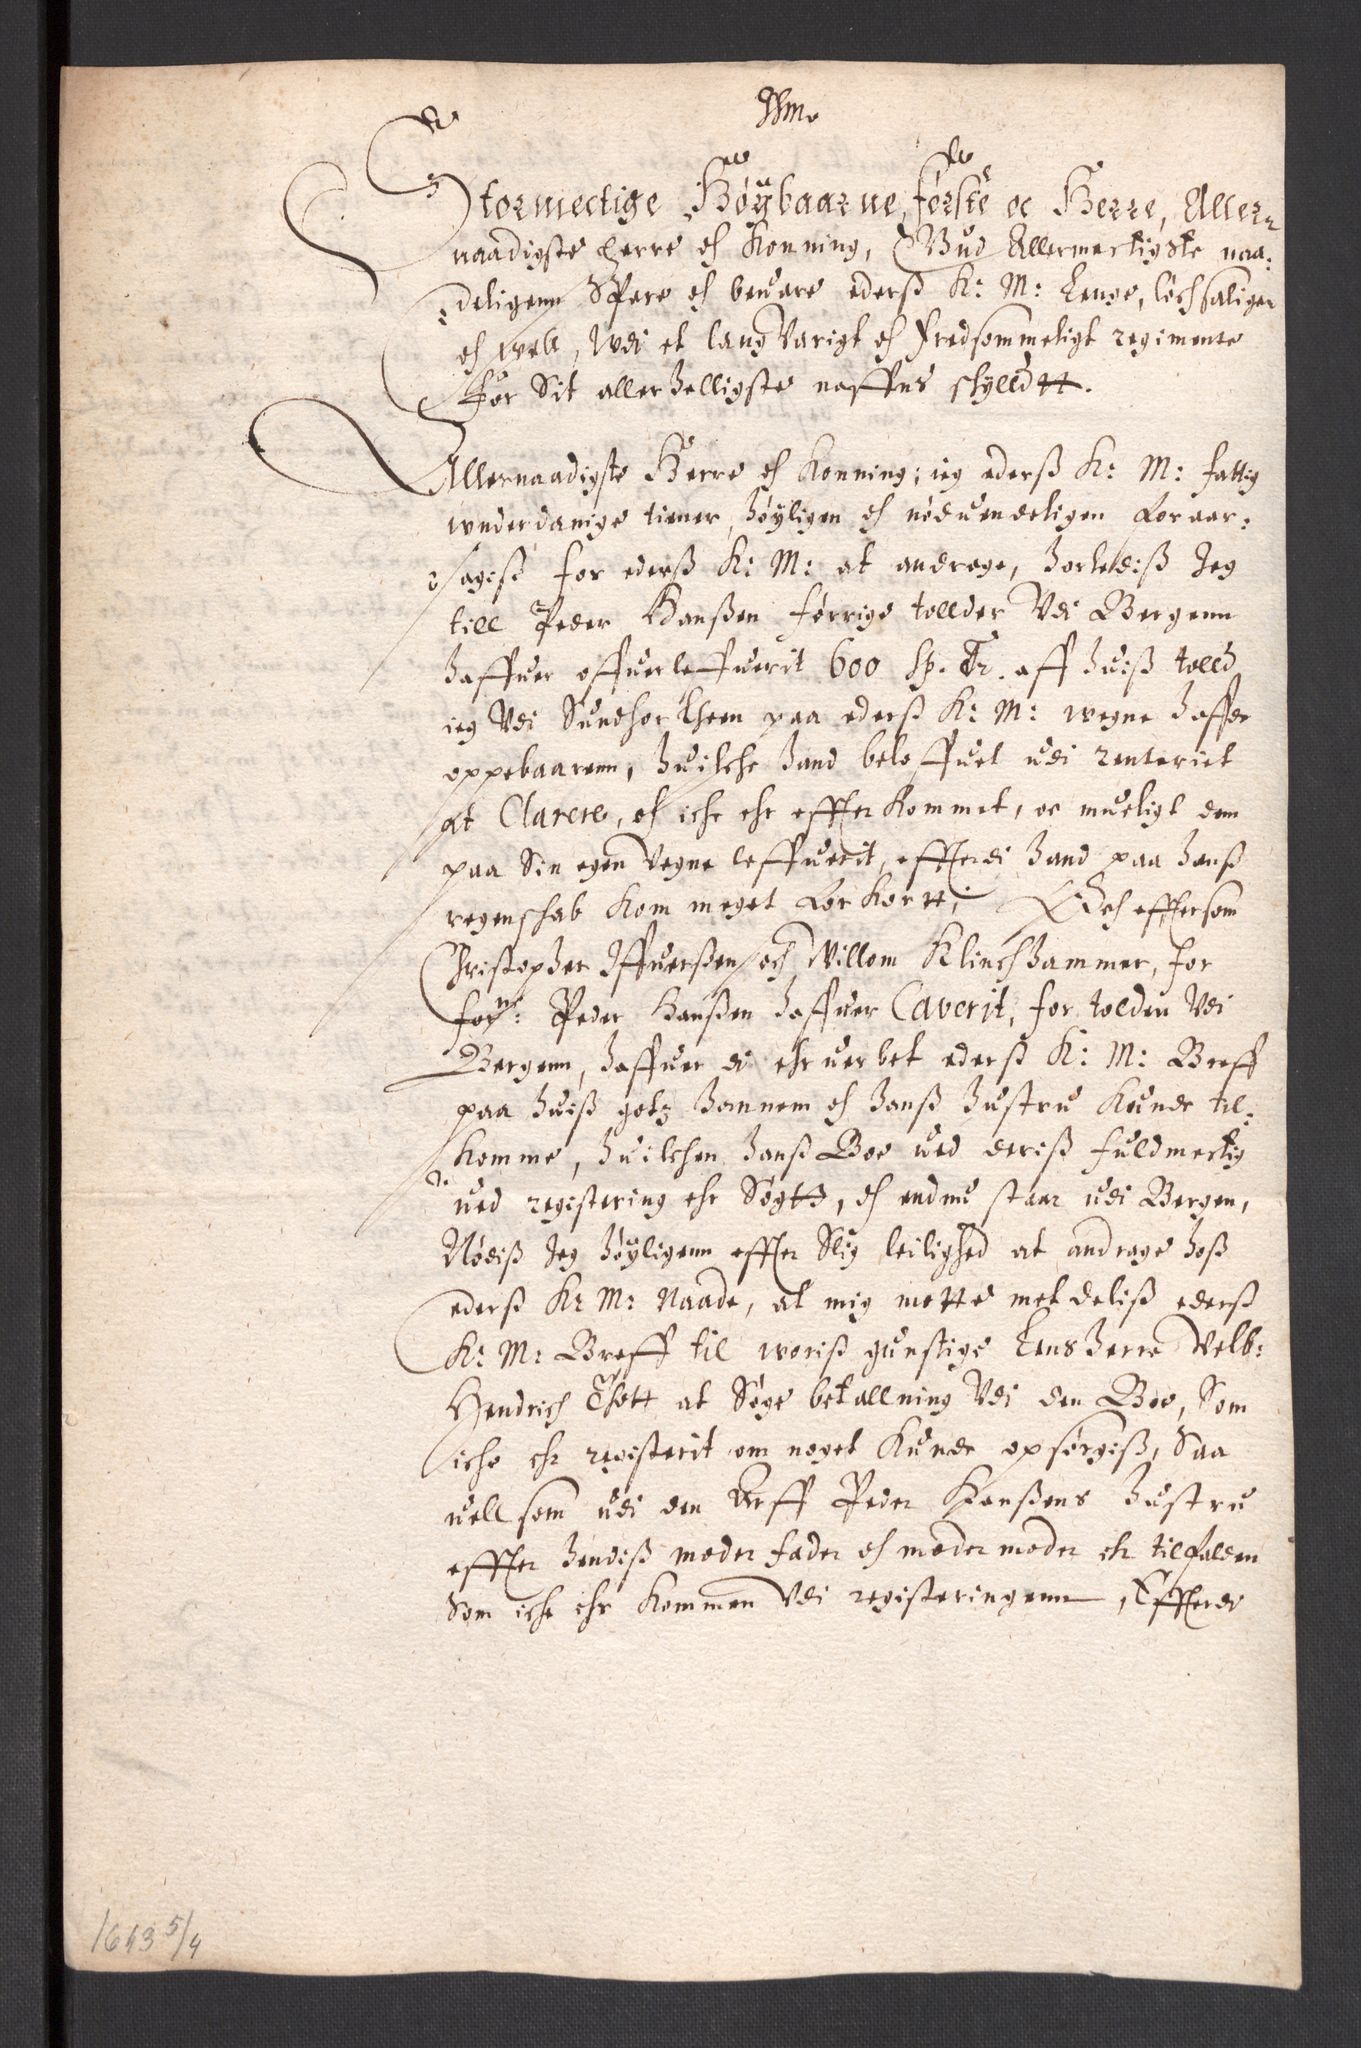 Stormectige Høÿbaarne, første oc Herre, Aller-
naadigste herre och Konning, Gud Allermectigste naa:
deligenn Spare och beuare ederß K: M: Lenge, löchsaligen
och well, Udi et langVarigt och fredsommeligt regimente
For Sit allerhelligste naffns skylldtt.
Allernaadigste Herre och Konning; ieg ederß K: M: fattig
wnderdanige tiener, høÿligen och nöduendeligen foraar:
sagiß for ederß K: M: at andrage, horledis Jeg
till Peder Hanßen forrige tollder Vdi Bergenn
haffuer offuerleffuerit 600 sp. Dr. aff huiß tolld
ieg Vdi Sundhorlheen paa ederß K: M: wegne haffde
oppebaarenn, huilche hand beloffuet udi renteriet
at Clarere, och iche ehr effterkommet, oc mueligt dem
paa Sin egen Vegne leffuerit, effterdi hand paa hanß
regenschab kom meget forkortt; Och efftersom
Christopher Iffuerßen och Willom Klinchhammer, for
forne: Peder Hanßen haffuer Caverit, for tolden Vdi
Bergenn, haffuer di ehruerbet ederß K: M: Breff
paa huiß gotz hannem och hanß hustru kunde til:
komme, huilchen hanß Boe ued deriß fuldmectig
ued registering ehr Søgtt, och endnu staar udi Bergen,
Nødiß Jeg høÿligenn effter Slig leilighed at andrage hoß
ederß K: M: Naade, at mig motte metdeliß ederß
K: M: Breff til woriß gunstige Lensherre Velb:
Hendrich Thott at Søge betallning Vdi den Boe, Som
iche ehr registerit om noget kunde opsørgiß, Saa
uell som udi den Arff Peder Hanßens hustru
effter hendiß moder fader och moder moder ehr tilfalden
Som iche ehr kommen Vdi registeringenn, Effterdi
1643 5/4